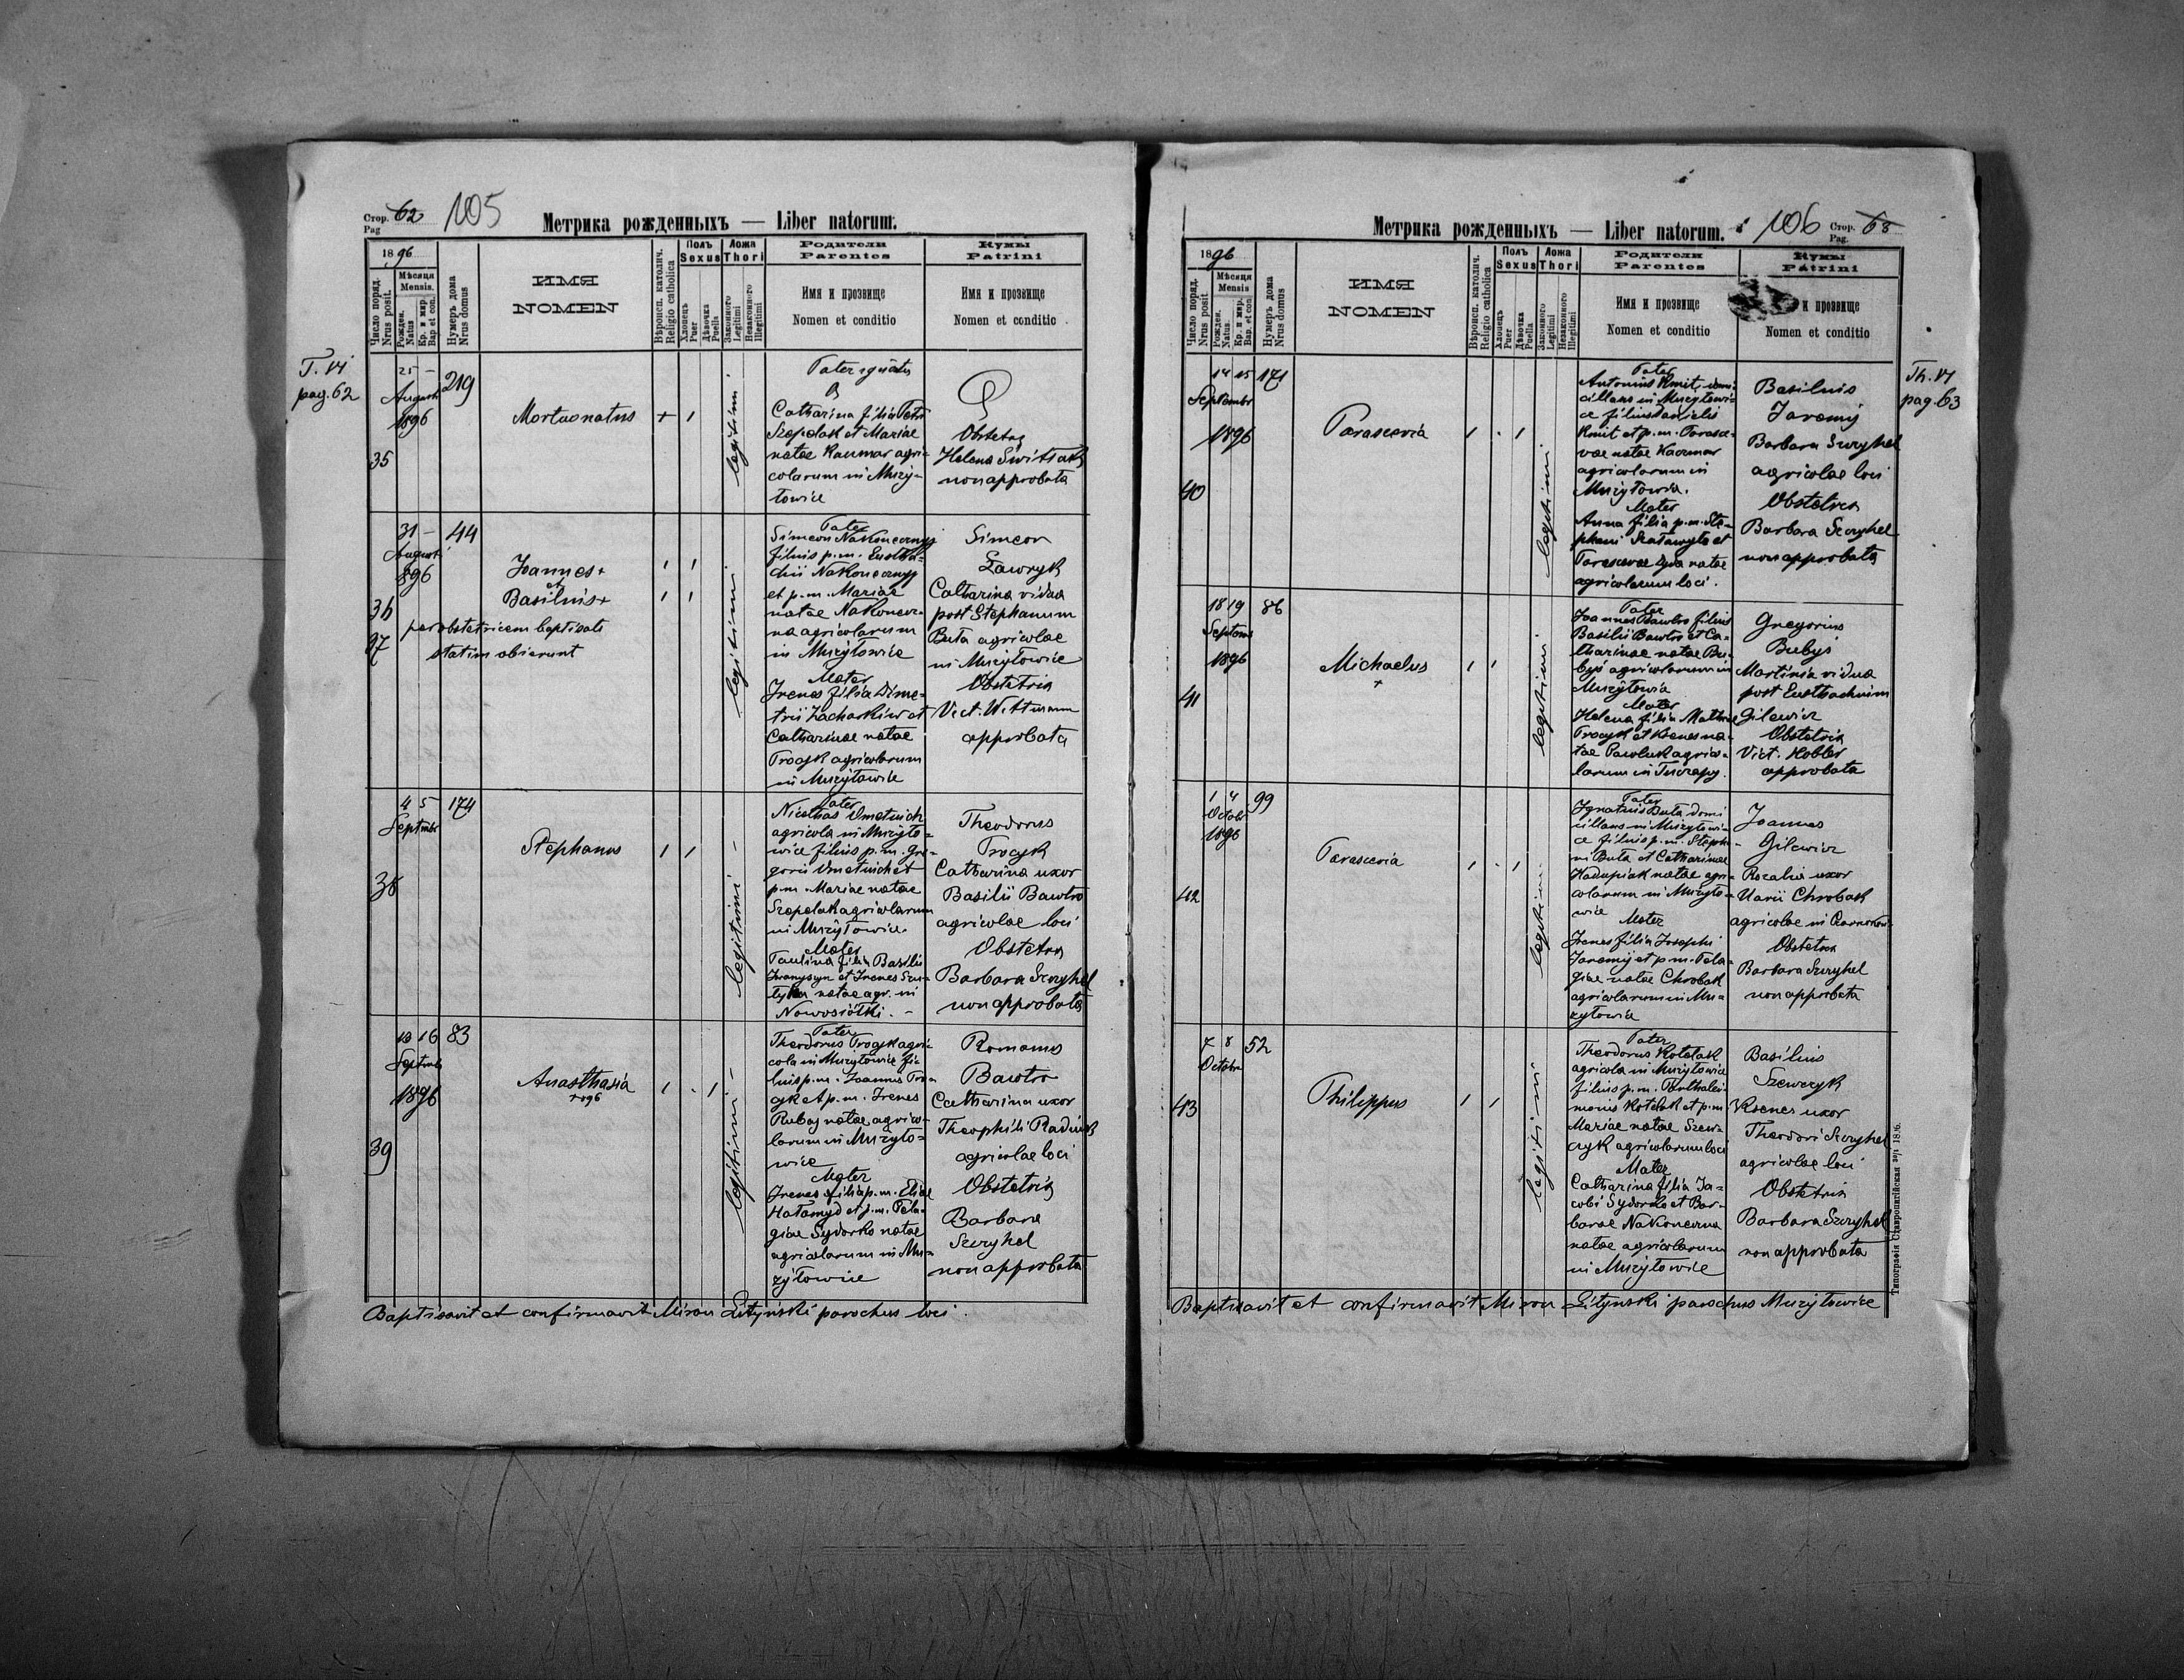 Стор. 62 105
Pag
Метрика рожденныхъ — Liber natorum.
1896
Число поряд.
Nrus posit.
Мѣсяця
Mensis.
Рожден.
Natus
Кр. и мир.
Bap. et con.
Нумеръ дома
Nrus domus
ИМЯ
NOMEN
Вѣроисп. католич.
Religio catholica
Полъ
Sexus
Хлопецъ
Puer
Дѣвочка
Puella
Ложа
Thori
Законного
Legitimi
Незаконного
Illegitimi
Родители
Parentes
Имя и прозвище
Nomen et conditio
Кумы
Patrini
Имя и прозвище
Nomen et conditio
T. VI
pag. 62
35
25 —
Augusti
1896
219
Mortuo natus
legitimi
Pater
Catharina filia Petri
Szopolak et Mariae
natae Kaczmar agri-
colarum in Muży-
łowice
Obstetrix
Helena Switłak
non approbata
36
37
31 —
Augusti
896
44
Joannes +
et
Basilius +
per obstetricem baptisati
statim obierunt
legitimi
Pater
Simeon Nakoneczny
filius p.m. Eustha-
chii Nakoneczny
et p.m. Mariae
natae Nakonecz-
na agricolarum
in Mużyłowice
Mater
Irenes filia Dime-
trii Zacharkiw et
Catharinae natae
Trocyk agricolarum
in Mużyłowice
Simeon
Ławryk
Catharina vidua
post Stephanum
Buta agricolae
in Mużyłowice
Obstetrix
Vict. Wittmann
approbata
38
4 5
Septmbr
174
Stephanus
legitimi
Pater
Nicolaus Umetnich
agricola in Mużyło-
wice filius p.m. Gre-
gorii Umetnich et
p.m. Mariae natae
Szopolak agricolarum
in Mużyłowice.
Mater
Paulina filia Basilii
Iwanyszyn et Irenes
natae agr. in
Nowosiółki. —
Theodorus
Trocyk
Catharina uxor
Basilii Bawtro
agricolae loci
Obstetrix
Barbara Szczyhel
non approbata
39
16
Septmb
1896
83
Anasthasia
legitimi
Pater
Theodorus Trocyk agri-
cola in Mużyłowice fi-
lius p.m. Joannes Tro-
cyk et p.m. Irenes
Rubaj natae agrico-
larum in Mużyło-
wice
Mater
Irenes filia p.m. Eliae
Hałamyd et p.m. Pela-
giae Sydorko natae
agricolarum in Mu-
żyłowice
Romanus
Bawtro
Catharina uxor
Theophili Radiuk
agricolae loci
Obstetrix
Barbara
Szczyhel
non approbata
Baptisavit et confirmavit Miron Lityński parochus loci.
Метрика рожденныхъ — Liber natorum.
106 Стор. 63
Pag.
1896
Число поряд.
Nrus posit
Мѣсяця
Mensis
Рожден.
Natus.
Кр. и мир.
Bap. et con
Нумеръ дома
Nrus domus
ИМЯ
NOMEN
Вѣроисп. католич.
Religio catholica
Полъ
Sexus
Хлопецъ
Puer
Дѣвочка
Puella
Ложа
Thori
Законного
Legitimi
Незаконного
Illegitimi
Родители
Parentes
Имя и прозвище
Nomen et conditio
Кумы
Patrini
и прозвище
Nomen et conditio
Th. VI
pag. 63
40
14 15
Septembr
1896
171
Parascevia
legitimi
Pater
Antonius Kmit, domi-
cillans in Mużyłowi-
ce filius Danielis
Kmit et p.m. Parasce-
vae natae Kaczmar
agricolarum in
Mużyłowice.
Mater
Anna filia p.m. Ste-
phani et
Parascevae natae
agricolarum loci.
Basilius
Jaremij
Barbara Szczyhel
agricolae loci
Obstetrix
Barbara Szczyhel
non approbata
41
18 19
Septemb
1896
86
Michaelus
+
legitimi
Pater
Joannes Bawtro filius
Basilii Bawtro et Ca-
tharinae natae Bu-
byś agricolarum in
Mużyłowice
Mater
Helena filia Mathiae
Trocyk et Ksenes na-
tae Pawluk agrico-
larum in Tuczapy.
Gregorius
Bubyś
Martinia vidua
post Eusthachium
Gilewicz
Obstetrix
Vict. Kobler
approbata
42
1 4
Octob
1896
99
Parascevia
legitimi
Pater
Ignatius Buta domi
cillans in Mużyłowi-
ce filius p.m. Stepha-
ni Buta et Catharinae
Hadupiak natae agri-
colarum in Mużyło-
wice
Mater
Irenes filia Josephi
Jaremij et p.m. Pela-
giae natae Chrobak
agricolarum in Mu-
żyłowice
Joannes
Gilewicz
Rozalia uxor
Chrobak
agricolae in
Obstetrix
Barbara Szczyhel
non approbata
43
7 8
Octobr
52
Philippus
legitimi
Pater
Theodorus Kotelak
agricola in Mużyłowice
filius p.m. Panthalei-
monis Kotelak et p.m.
Mariae natae Szew-
czyk agricolarum loci
Mater
Catharina filia Ja-
cobi Sydorko et Bar-
barae Nakoneczna
natae agricolarum
in Mużyłowice
Basilius
Szewczyk
Ksenes uxor
Theodori Szczyhel
agricolae loci
Obstetrix
Barbara Szczyhel
non approbata
Baptisavit et confirmavit Miron Lityński parochus Mużyłowice
Типографія Ставропигійская